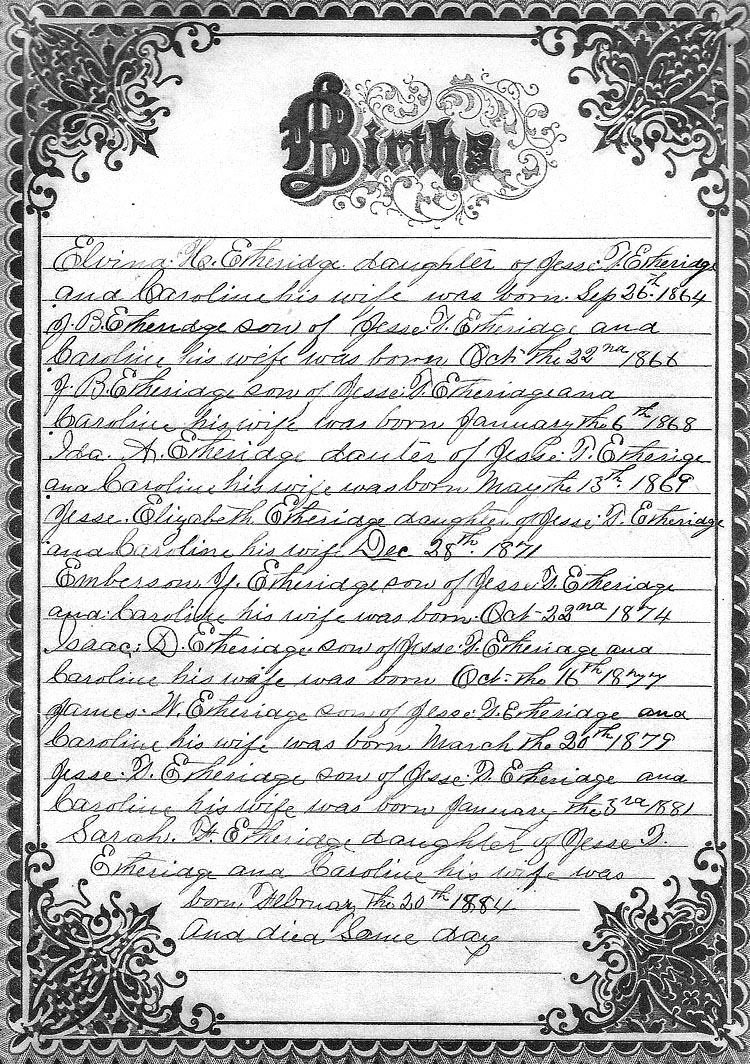 Births
Elvina. H. Etheridge. daughter of Jesse. T. Etheridge
and Caroline his wife was born. Sep 26th 1864
J. B. Etheridge son of Jesse. T. Etheridge and
Caroline his wife was born Oct the 22nd 1866
J. B. Etheridge son of Jesse. T. Etheridge and
Caroline his wife was born January the 6th 1868
Ida. A. Etheridge dauter of Jesse. T. Etherige
and Caroline his wife was born May the 13th 1869
Jesse. Elizabeth Etheridge daughter of Jesse. T. Etheridge
and Caroline his wife Dec 28th 1871
Emberson. Y. Etheridge son of Jesse T. Etheridge
and Caroline his wife was born. Oct 22nd 1874
Isaac. D. Etheridge son of Jesse. T. Etheridge and
Caroline his wife was born Oct the 16th 1877
James. W. Etheridge son of Jesse T. Etheridge and
Caroline his wife was born March the 20th 1879
Jesse. T. Etheridge son of Jesse. T. Etheridge and
Caroline his wife was born January the 3rd 1881
Sarah. F. Etheridge daughter of Jesse T.
Etheridge and Caroline his wife was
born February the 20th 1884
And died Same day